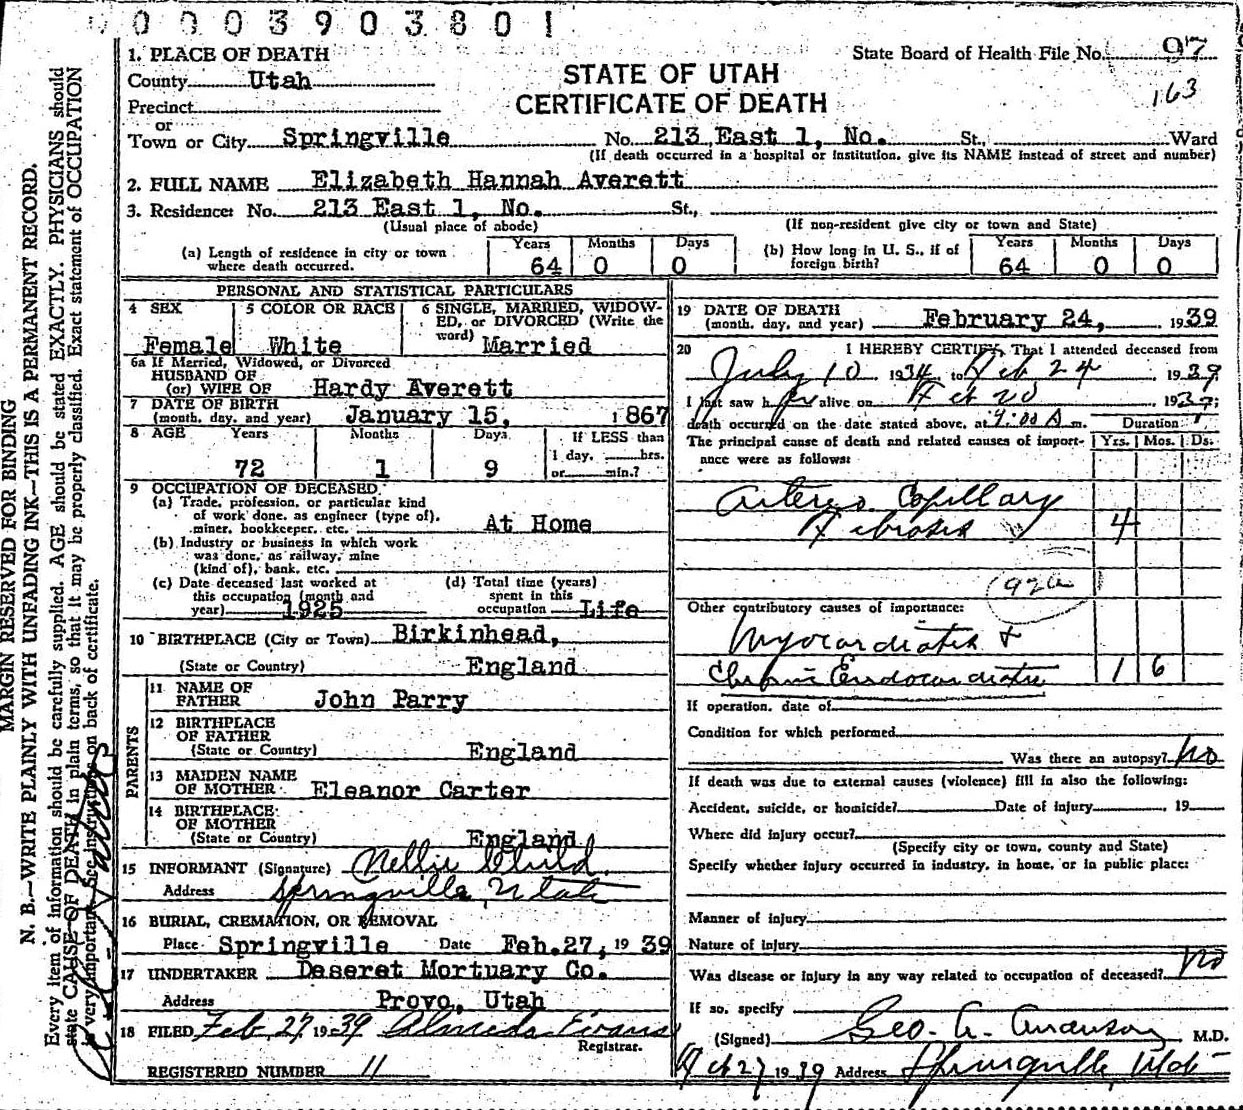 0003903801
1. PLACE OF DEATH
County Utah
Precinct
or
Town or City Springville
State Board of Health File No. 97
163
STATE OF UTAH
CERTIFICATE OF DEATH
No. 213 East 1, No. St., Ward
(If death occurred in a hospital or institution, give its NAME instead of street and number)
2. FULL NAME Elizabeth Hannah Averett
3. Residence: No. 213 East 1, No. St.,
(Usual place of abode) (If non-resident give city or town and State)
(a) Length of residence in city or town where death occurred. Years 64 Months 0 Days 0
(b) How long in U. S., if of foreign birth? Years 64 Months 0 Days 0
PERSONAL AND STATISTICAL PARTICULARS
4 SEX Female
5 COLOR OR RACE White
6 SINGLE, MARRIED, WIDOWED, or DIVORCED (Write the word) Married
6a If Married, Widowed, or Divorced
HUSBAND OF
(or) WIFE OF Hardy Averett
7 DATE OF BIRTH
(month, day, and year) January 15, 1867
8 AGE Years 72 Months 1 Days 9
If LESS than
1 day, hrs.
or min.?
9 OCCUPATION OF DECEASED
(a) Trade, profession, or particular kind
of work done, as engineer (type of),
miner, bookkeeper, etc. At Home
(b) Industry or business in which work
was done, as railway, mine
(kind of), bank, etc.
(c) Date deceased last worked at
this occupation (month and
year) 1925
(d) Total time (years)
spent in this
occupation Life
10 BIRTHPLACE (City or Town) Birkinhead,
(State or Country) England
PARENTS
11 NAME OF
FATHER John Parry
12 BIRTHPLACE
OF FATHER
(State or Country) England
13 MAIDEN NAME
OF MOTHER Eleanor Carter
14 BIRTHPLACE
OF MOTHER
(State or Country) England
15 INFORMANT (Signature) Nellie Child
Address Springville, Utah
16 BURIAL, CREMATION, OR REMOVAL
Place Springville Date Feb. 27, 1939
17 UNDERTAKER Deseret Mortuary Co.
Address Provo, Utah
18 FILED Feb 27 1939 Almeda Evans
Registrar.
REGISTERED NUMBER 11
19 DATE OF DEATH
(month, day, and year) February 24, 1939
20 I HEREBY CERTIFY, That I attended deceased from
July 10 1934 to Feb 24 1939
I last saw her alive on Feb 20 1939;
death occurred on the date stated above, at 9:00 A m.
Duration
The principal cause of death and related causes of importance were as follows: Yrs. Mos. Ds.
Arterio Capillary
Fibrosis 4
92a
Other contributory causes of importance:
Myocardiatis &
Chronic Endocardiatis 1 6
If operation, date of
Condition for which performed
Was there an autopsy? No
If death was due to external causes (violence) fill in also the following:
Accident, suicide, or homicide? Date of injury , 19
Where did injury occur?
(Specify city or town, county and State)
Specify whether injury occurred in industry, in home, or in public place:
Manner of injury
Nature of injury
Was disease or injury in any way related to occupation of deceased? No
If so, specify
(Signed) Geo. A. Anderson M.D.
Feb 27 1939 Address Springville, Utah
MARGIN RESERVED FOR BINDING
N. B.—WRITE PLAINLY WITH UNFADING INK—THIS IS A PERMANENT RECORD.
Every item of information should be carefully supplied. AGE should be stated EXACTLY. PHYSICIANS should
state CAUSE OF DEATH in plain terms, so that it may be properly classified. Exact statement of OCCUPATION
is very important. See instructions on back of certificate.